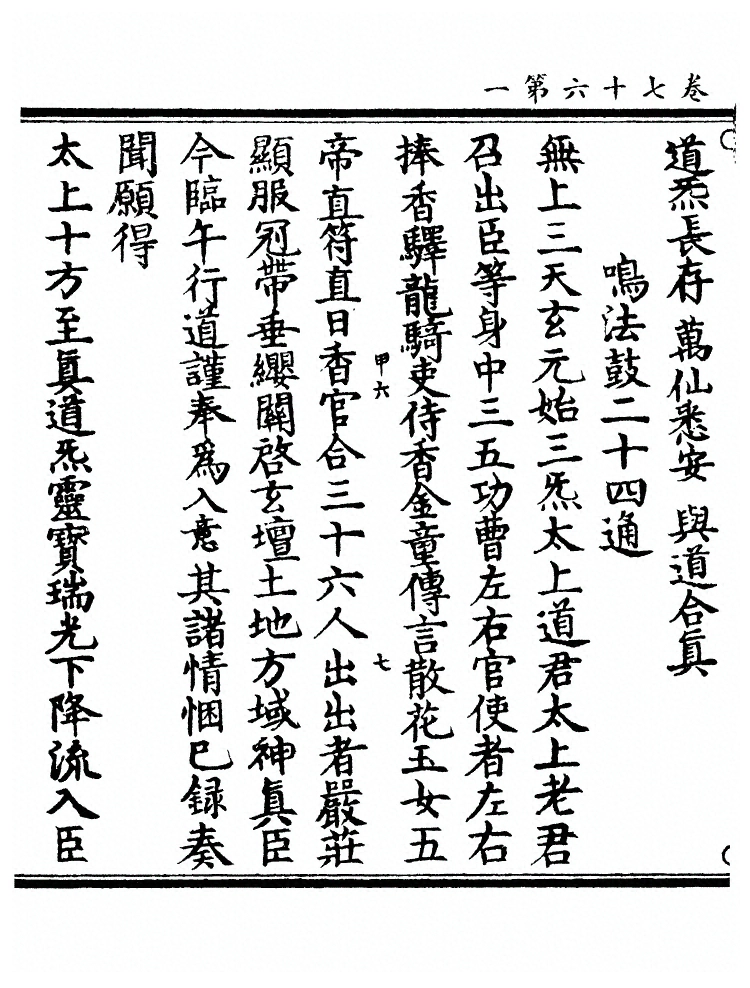 一第六十七卷
道炁長存 萬仙悉安 與道合眞
鳴法鼓二十四通
無上三天玄元始三炁太上道君太上老君
召出臣等身中三五功曹左右官使者左右
捧香驛龍騎吏侍香金童傳言散花玉女五
甲六 七
帝直符直日香官合三十六人 出出者嚴莊
顯服冠帶垂纓關啓玄壇土地方域神眞臣
今臨午行道謹奉爲入意其諸情悃已録奏
聞願得
太上十方至眞道炁靈寶瑞光下降流入臣